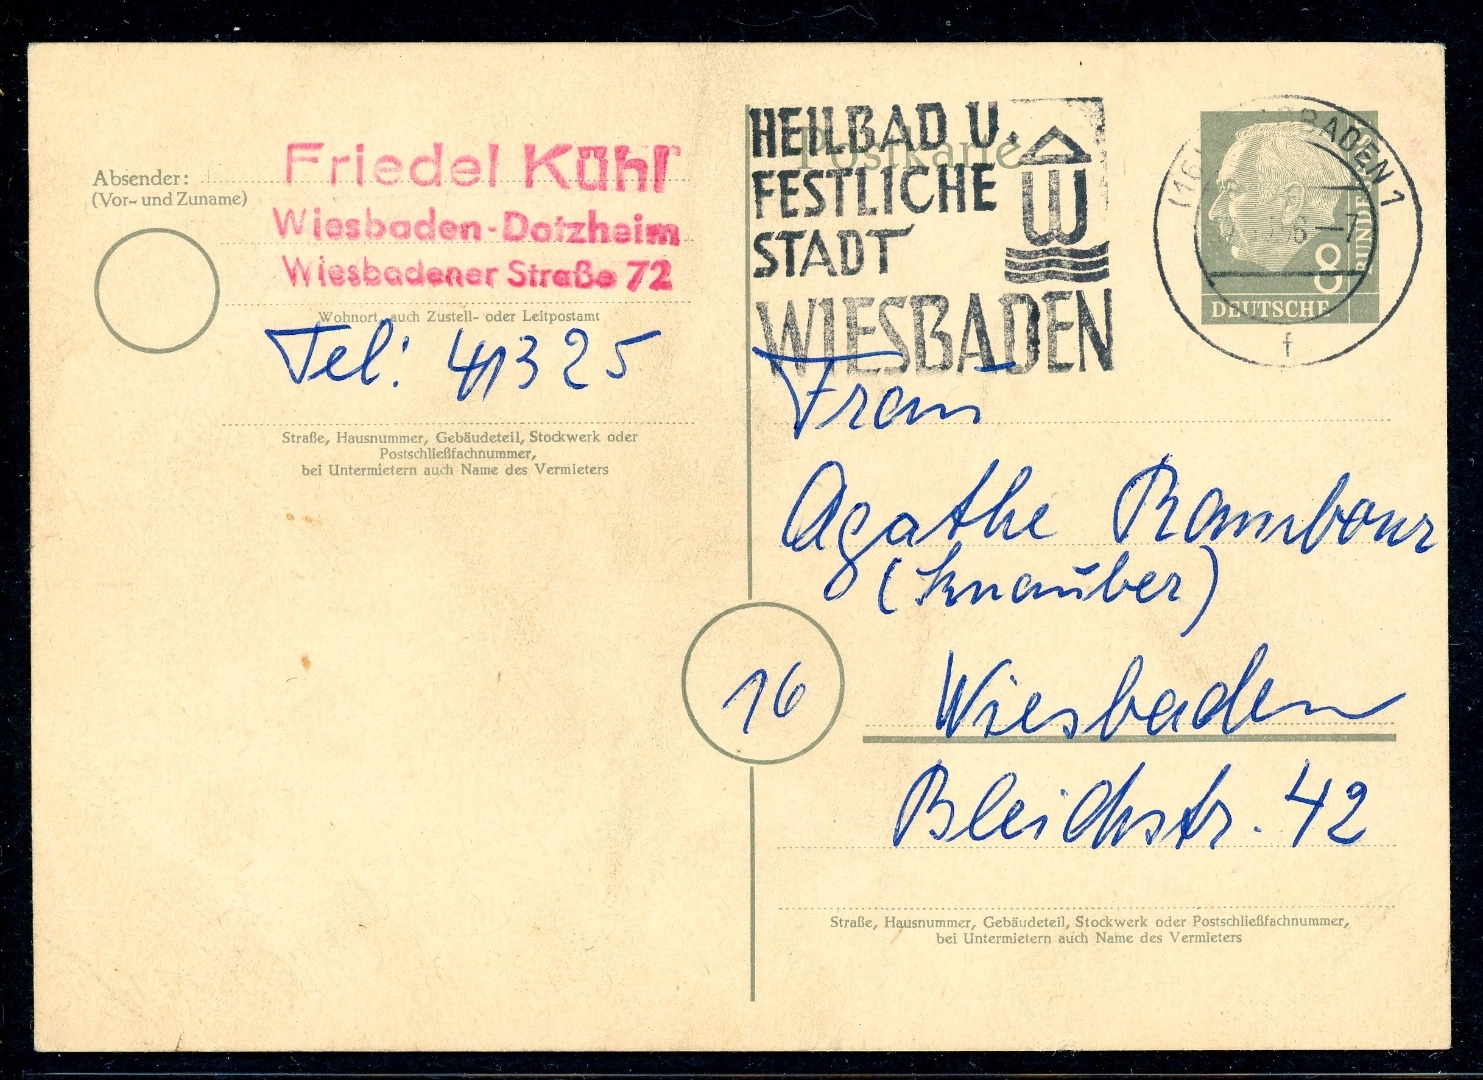 Absender:
(Vor- und Zuname)
Friedel Kühl
Wiesbaden-Dotzheim
Wiesbadener Straße 72
Wohnort, auch Zustell- oder Leitpostamt
Tel: 41325
Straße, Hausnummer, Gebäudeteil, Stockwerk oder
Postschließfachnummer,
bei Untermietern auch Name des Vermieters
Postkarte
HEILBAD U.
FESTLICHE
STADT
WIESBADEN
W
BADEN 1
f
8
DEUTSCHE
BUNDES
Frau
Agathe Rambour
(Knauber)
16
Wiesbaden
Bleichstr. 42
Straße, Hausnummer, Gebäudeteil, Stockwerk oder Postschließfachnummer,
bei Untermietern auch Name des Vermieters